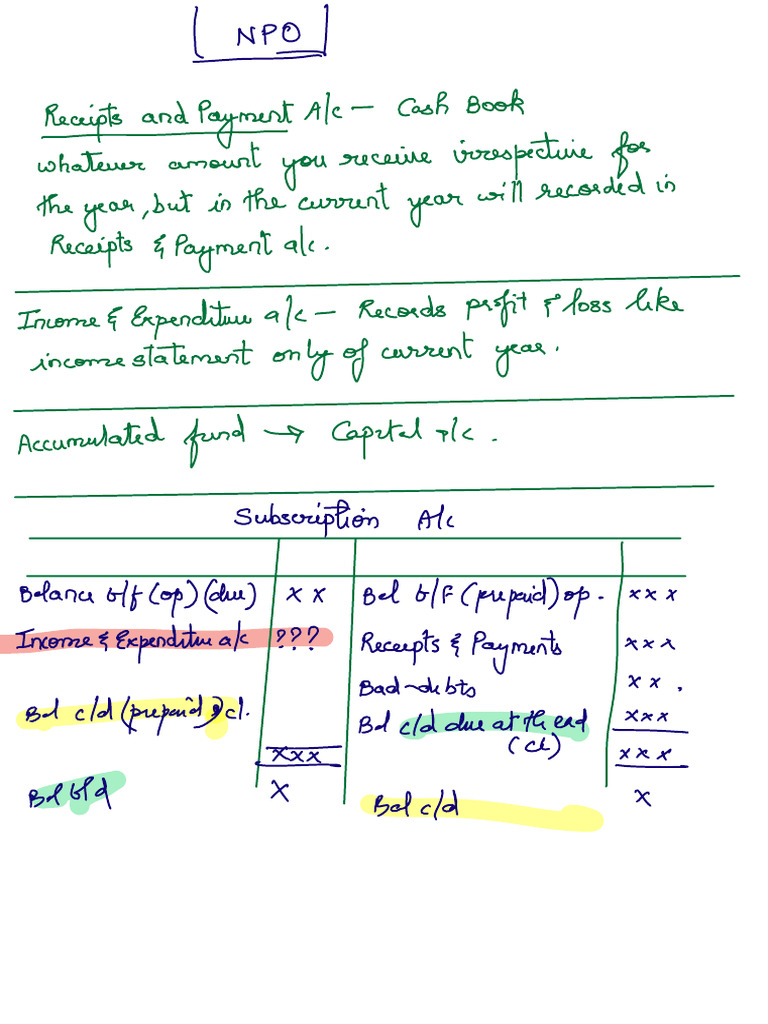 NPO
Receipts and Payment A/c — Cash Book
whatever amount you receive irrespective for
the year, but in the current year will recorded in
Receipts & Payment a/c.
Income & Expenditure a/c — Records profit & loss like
income statement only of current year.
Accumulated fund → Capital a/c.
Subscription A/c
Balance b/f (op) (due) x x Bal b/F (prepaid) op. x x x
Income & Expenditure a/c ??? Receipts & Payments x x x
Bad-debts x x .
Bal c/d (prepaid) cl. Bal c/d due at the end x x x
(cl)
x x x x x x
Bal b/d x Bal c/d x